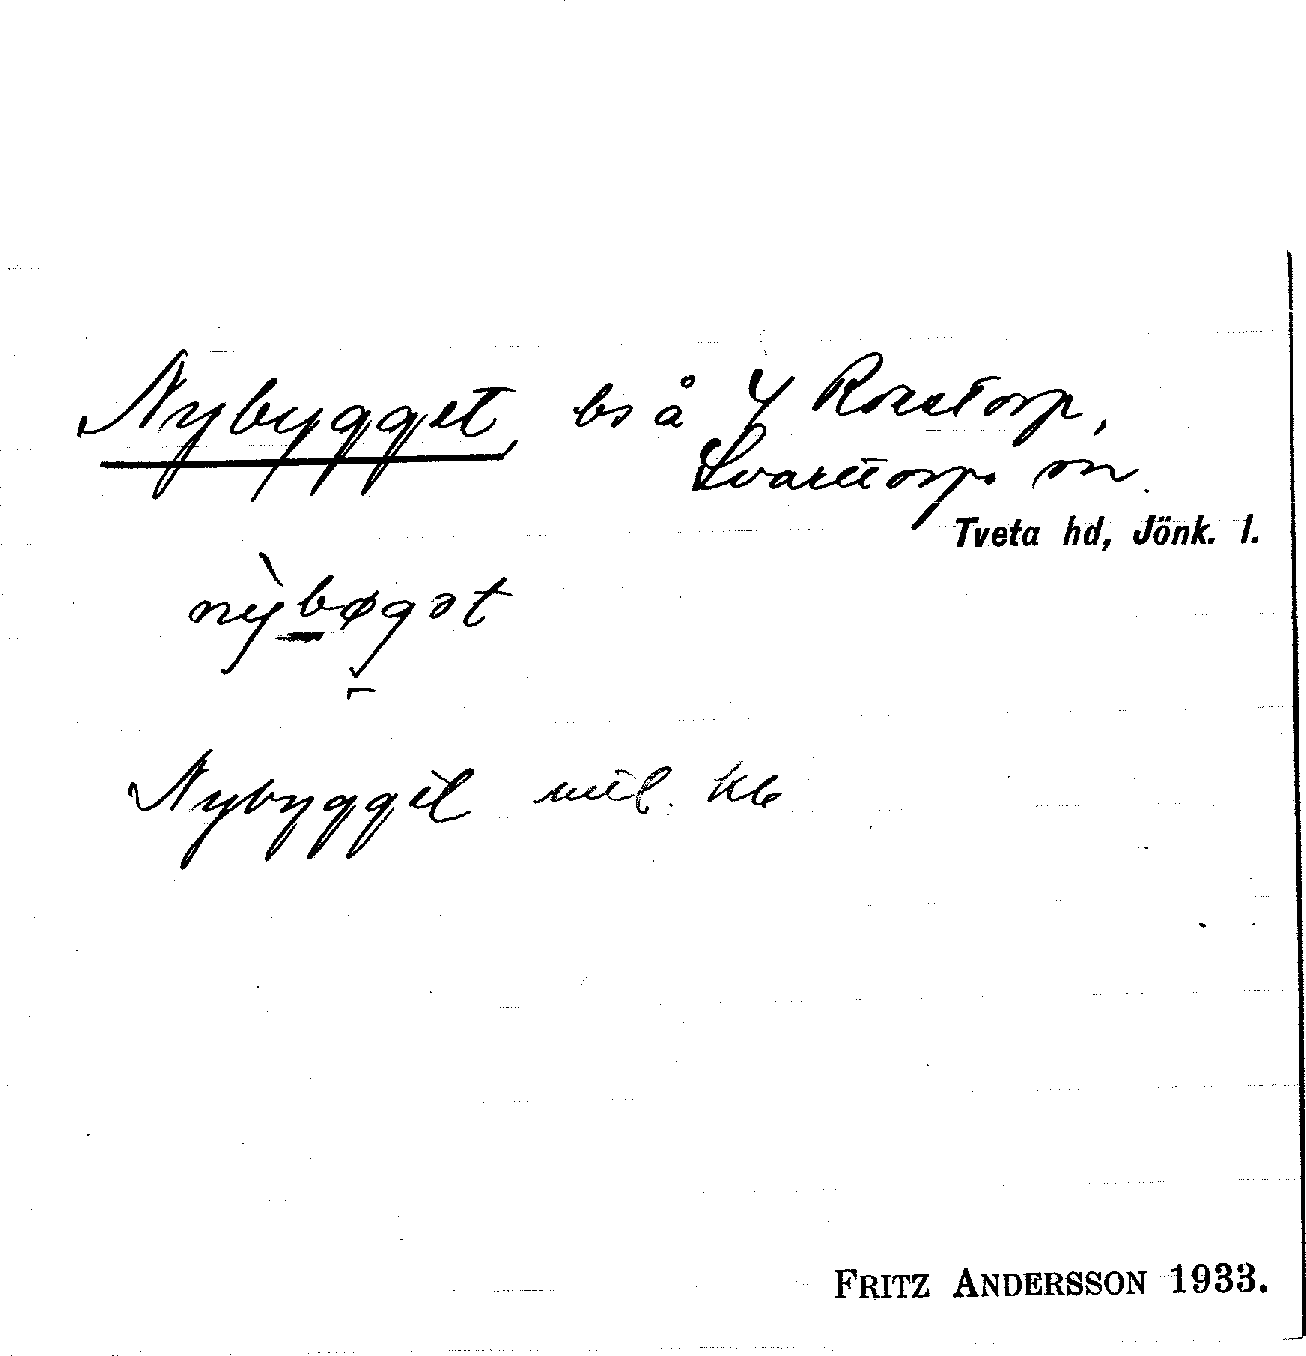 Nybygget, bs å Y Rosstorp,
Svarttorps sn.
Tveta hd, Jönk. l.
nỳbøgət
Nybygget
FRITZ ANDERSSON 1933.